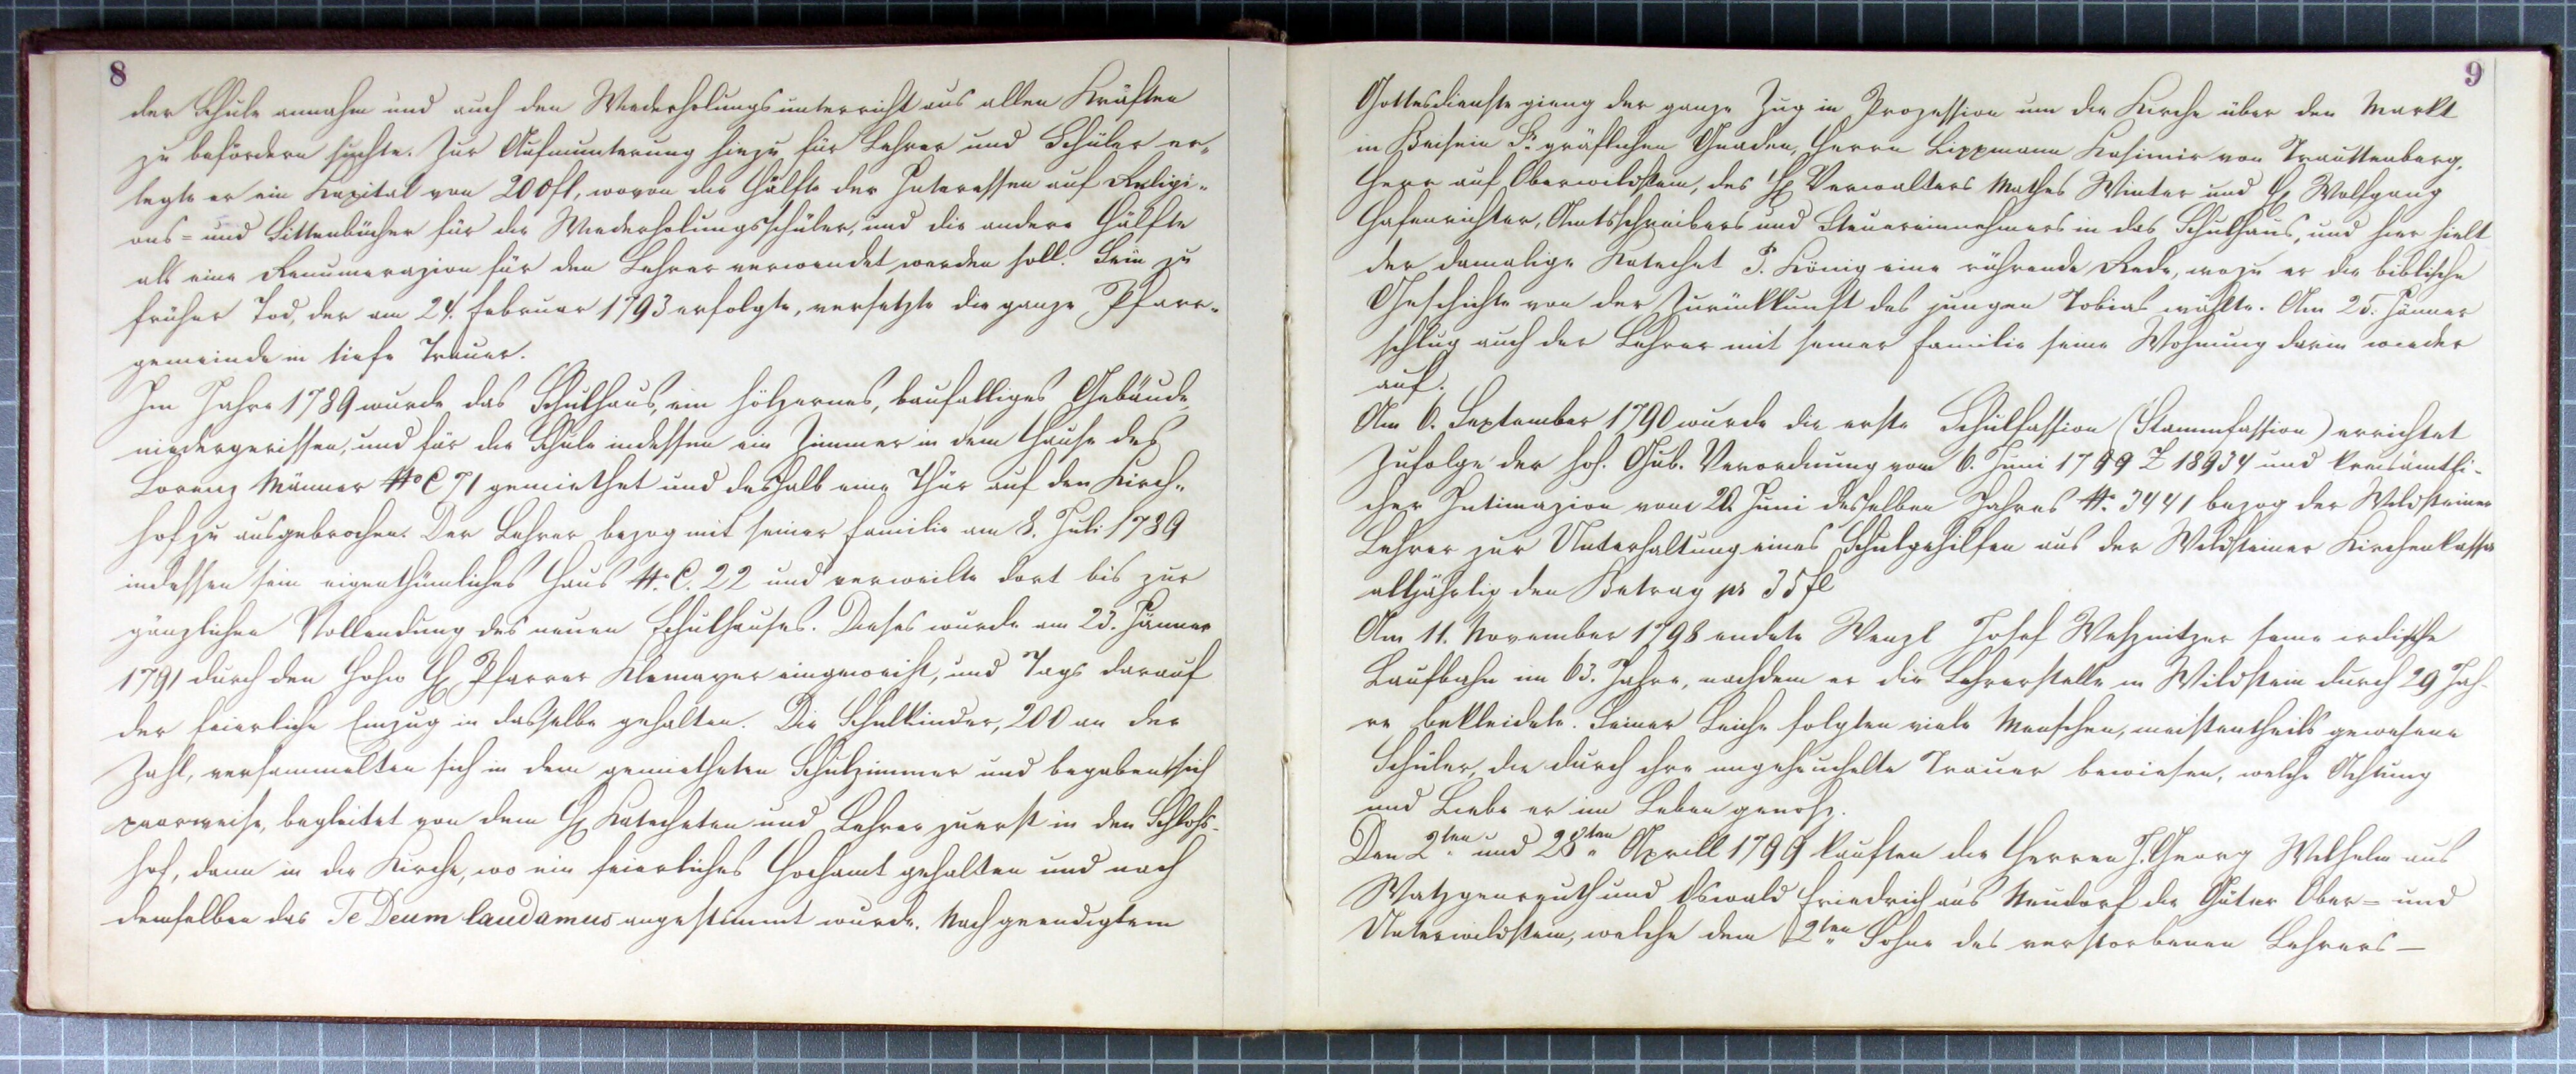 8
der Schule annahm und auch den Wiederholungsunterricht aus allen Kräften
zu befördern suchte. Zur Aufmunterung hiezu für Lehrer und Schüler er-
legte er ein Kapital von 200 fl, wovon die Hälfte der Interessen auf Religi-
ons= und Sittenbücher für die Wiederholungsschüler, und die andere Hälfte
als eine Renumerazion für den Lehrer verwendet werden soll. Sein zu
früher Tod, der am 24. Februar 1793 erfolgte, versetzte die ganze Pfarr-
gemeinde in tiefe Trauer.
Im Jahre 1789 wurde das Schulhaus, ein hölzernes, baufälliges Gebäude,
niedergerissen, und für die Schule indessen ein Zimmer in dem Hause des
Lorenz Männer No C 71 gemiethet und deshalb eine Thür auf den Kirch-
hof zu ausgebrochen. Der Lehrer bezog mit seiner Familie am 8. Juli 1789
indessen sein eigenthümliches Haus No. C. 22 und verweilte dort bis zur
gänzlichen Vollendung des neuen Schulhauses. Dieses wurde am 23. Jänner
1791 durch den Hohw H Pfarrer Klemayer eingeweiht, und Tags darauf
der feierliche Einzug in dasselbe gehalten. Die Schulkinder, 200 an der
Zahl, versammelten sich in dem gemietheten Schulzimmer und begaben sich
paarweise, begleitet von dem H Katecheten und Lehrer zuerst in den Schloß-
hof, dann in die Kirche, wo ein feierliches Hochamt gehalten und nach
demselben das Te Deum laudamus angestimmt wurde. Nach geendigtem
9
Gottesdienste gieng der ganze Zug in Prozession um die Kirche über den Markt
in Beisein Sr gräflichen Gnaden, Herrn Lippmann Kasimir von Trauttenberg,
Herr auf Oberwildstein, des H Verwalters Mathes Winter und H Wolfgang
Hafenrichter, Amtsschreibers und Steuereinnehmers in das Schulhaus, und hier hielt
der damalige Katechet P. König eine rührende Rede, wozu er die biblische
Geschichte von der Zurückkunft des jungen Tobias wählte. Am 25. Jänner
schlug auch der Lehrer mit seiner Familie seine Wohnung darin wieder
auf.
Am 6. September 1790 wurde die erste Schulfassion (Stammfassion) errichtet
Zufolge der hoh. Gub. Verordnung vom 6. Juni 1799 Z 18934 und kreisämtli-
cher Intimazion vom 20. Juni desselben Jahres No. 3441 bezog der Wildsteiner
Lehrer zur Unterhaltung eines Schulgehilfen aus der Wildsteiner Kirchenkassa
alljährlig den Betrag pr 35 fl
Am 11. November 1798 endete Wenzl Josef Waßnitzer seine irdische
Laufbahn im 63. Jahre, nachdem er die Lehrerstelle in Wildstein durch 29 Jah-
re bekleidete. Seiner Leiche folgten viele Menschen, meistentheils gewesene
Schüler, die durch ihre ungeheuchelte Trauer bewiesen, welche Achtung
und Liebe er im Leben genoß.
Den 2ten und 28ten Aprill 1799 kauften die Herren J. Georg Wilhelm aus
Watzgenreuth und Oswald Friedrich aus Neudorf die Güter Ober= und
Unterwildstein, welche dem 2ten Sohne des verstorbenen Lehrers —